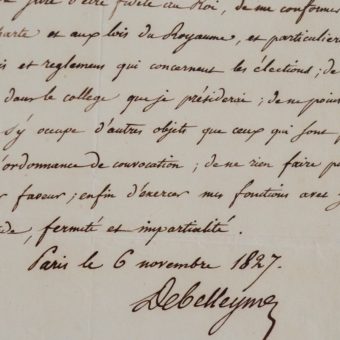 Je jure d'être fidèle au Roi, de me conformer
charte et aux lois du Royaume, et particulière
is et reglemens qui concernent les élections; de
dans le college que je présiderai; de ne pouv
s'y occupe d'autres objets que ceux qui sont p
l'ordonnance de convocation; de ne rien faire p
r faveur; enfin d'exercer mes fonctions avec
de, fermeté et impartialité.
Paris le 6 novembre 1827.
Debelleyme